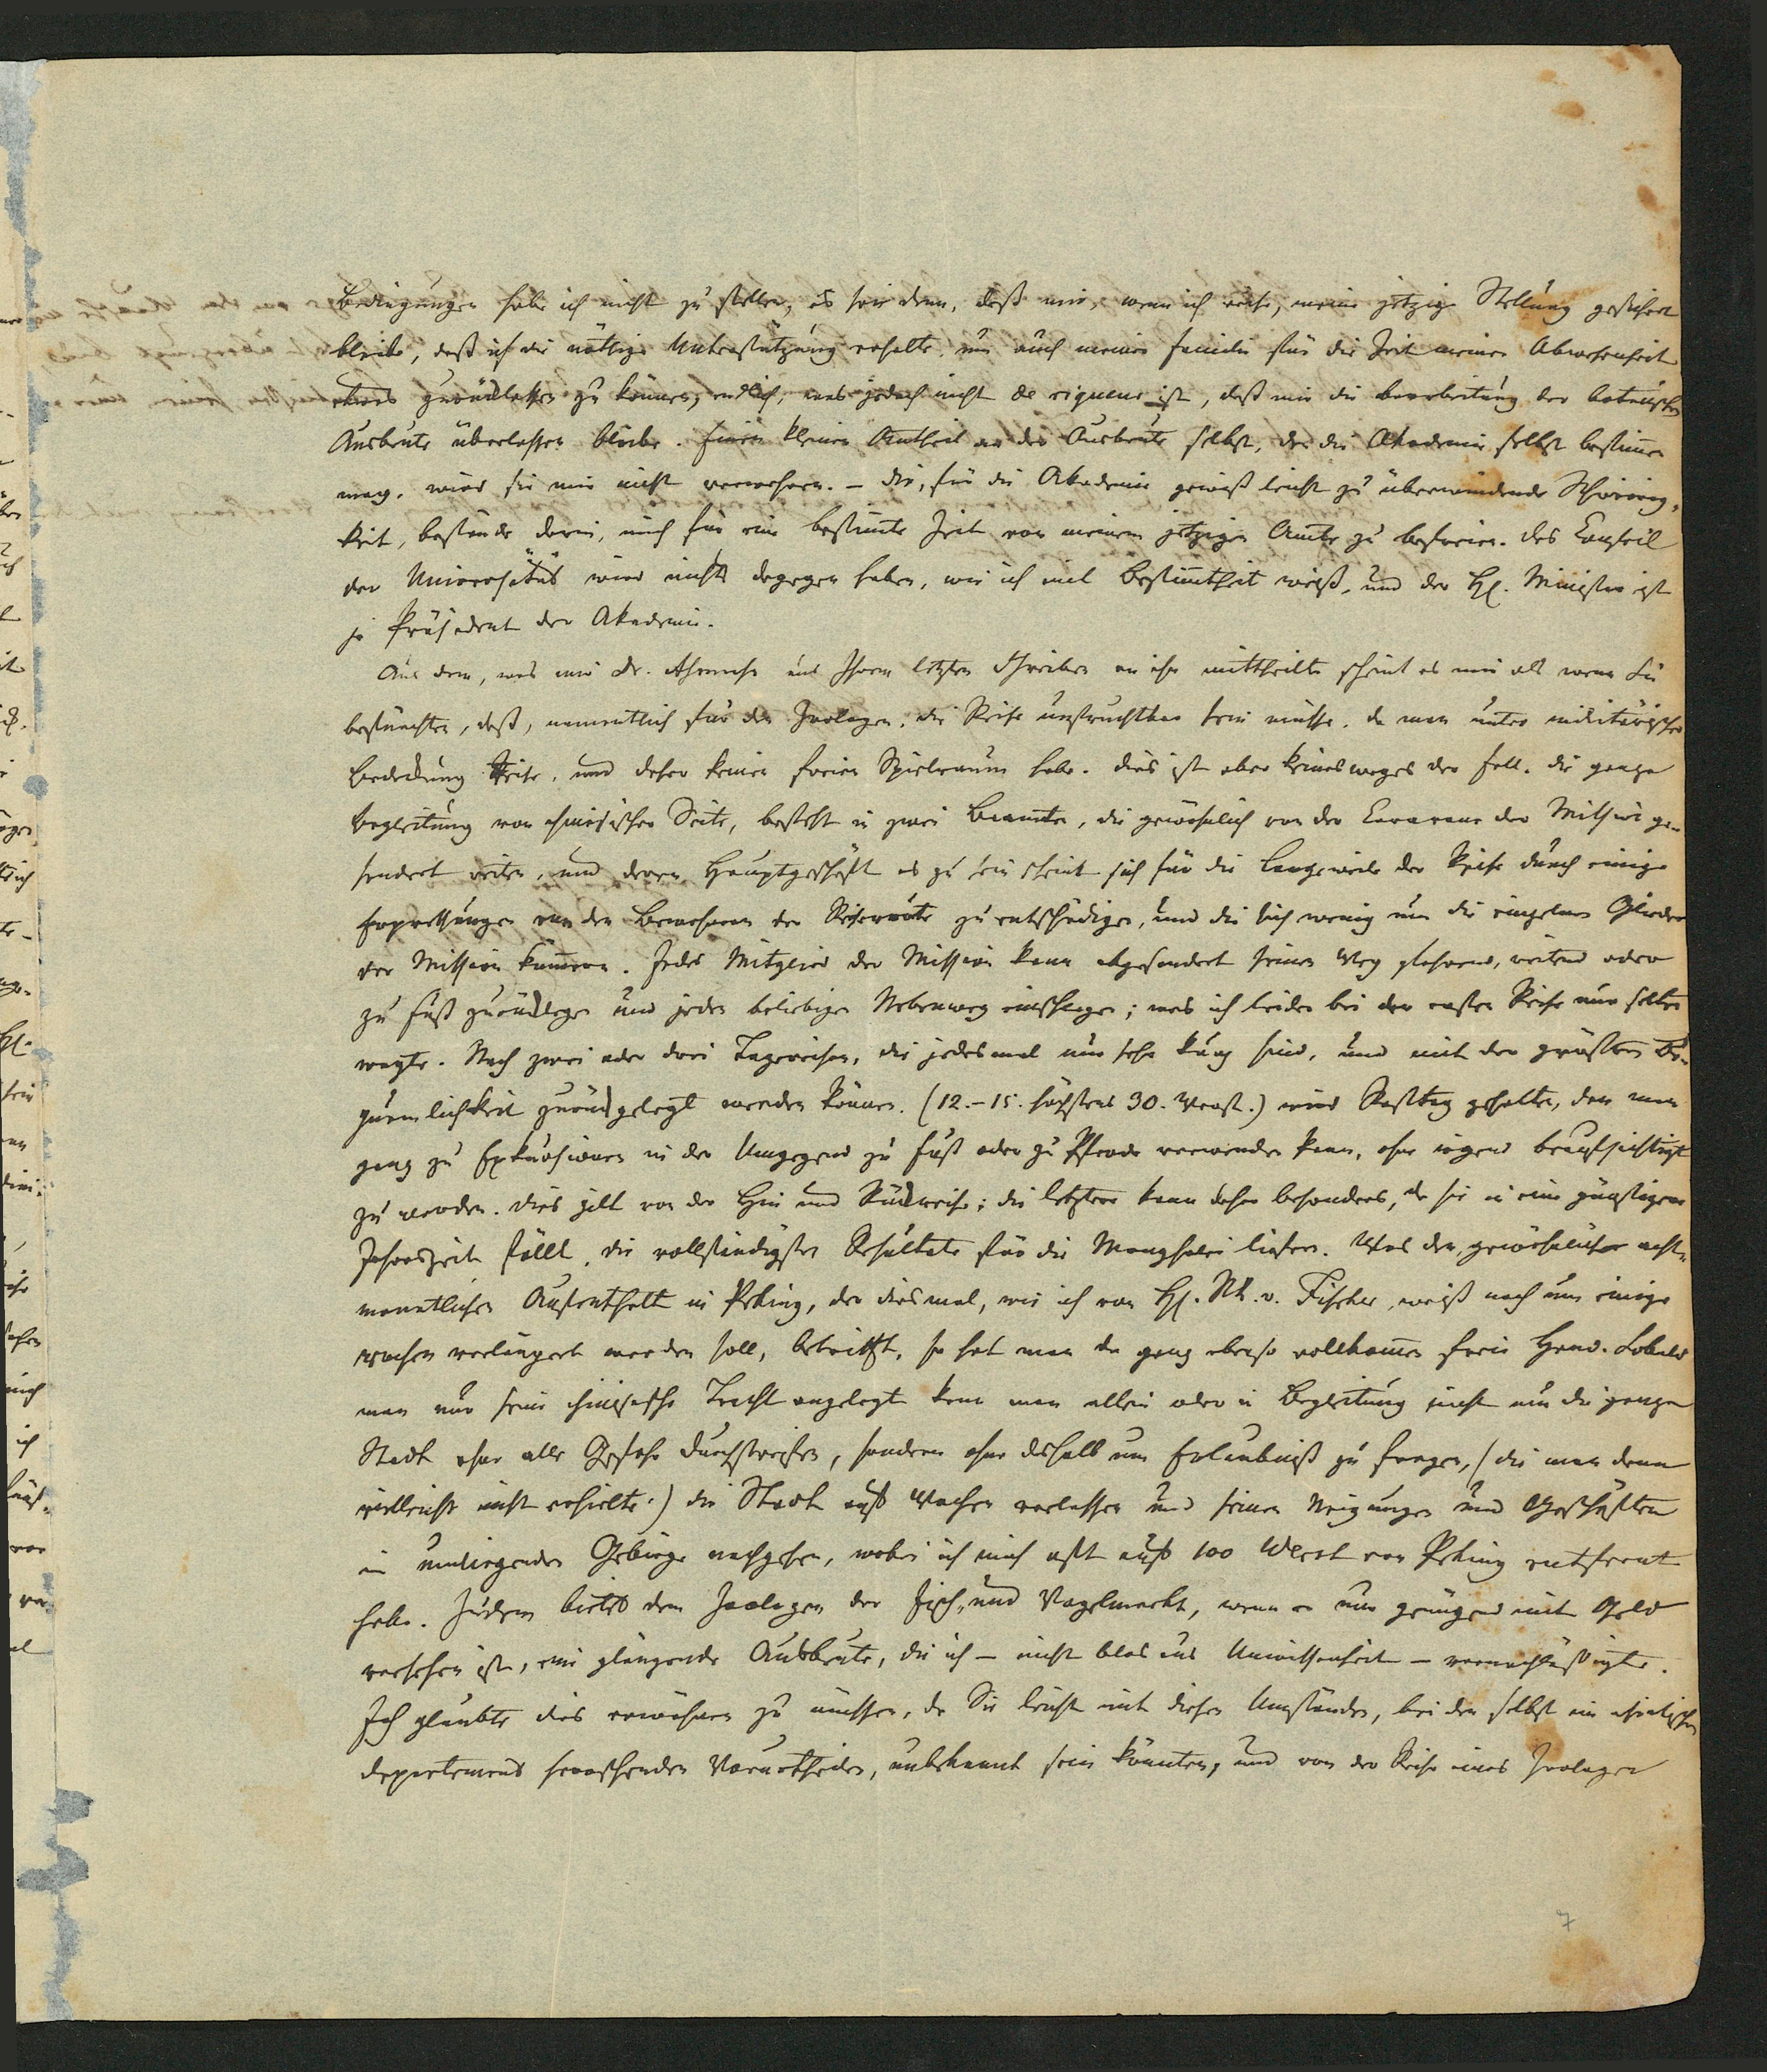 Bedingungen habe ich nicht zu stellen, es sei denn, daß mir, wenn ich reise, meine jetzige Stellung gesichert
bleibe, daß ich die nöthige Unterstützung erhalte, um auch meiner Familie für die Zeit meiner Abwesenheit
etwas zurücklassen zu können, endlich, was jedoch nicht de rigueur ist, daß mir die Bearbeitung der botanischen
Ausbeute überlassen bleibe. Einen kleinen Antheil an der Ausbeute selbst, den die Akademie selbst bestimen
mag, wird sie mir nicht verwehren. – Die, für die Akademie gewiß leicht zu überwindende Schwierig-
keit, bestände darin, mich für eine bestimte Zeit von meinem jetzigen Amte zu befreien. Das Conseil
der Universität wird nichts dagegen haben, wie ich mit Bestimtheit weiß, und der H. Minister ist
ja Präsident der Akademie.
Aus dem, was mir Dr. aus Ihrem letzten Schreiben an ihn mittheilte scheint es mir als wenn Sie
befürchten, daß, namentlich für den Zoologen, die Reise unfruchtbar sein müsse, da man unter militärischer
Bedeckung reise, und daher keinen freien Spielraum habe. Dies ist aber keinesweges der Fall. Die ganze
Begleitung von chinesischer Seite, besteht in zwei Beamten, die gewöhnlich von der Caravane der Mission ge-
sondert reiten, und deren Hauptgeschäft es zu sein scheint sich für die Langeweile der Reise durch einige
Erpressungen von den Bewohnern der Reiseroute zu entschädigen, und die sich wenig um die einzelnen Glieder
der Mission kümern. Jedes Mitglied der Mission kann abgesondert seinen Weg fahrend, reitend oder
zu Fuß zurücklegen und jeden beliebigen Nebenweg einschlagen; was ich leider bei der ersten Reise nur selten
wagte. Nach zwei oder drei Tagereisen, die jedesmal nur sehr kurz sind, und mit der größten Be-
quemlichkeit zurückgelegt werden können. (12.–15. höchstens 30. Werst.) wird Rasttag gehalten, den man
ganz zu Exkursionen in der Umgegend zu Fuß oder zu Pferde verwenden kann, ohne irgend beaufsichtigt
zu werden. Dies gilt von der Hin und Rückreise; die letztere kann daher besonders, da sie in eine günstigere
Jahreszeit fällt, die vollständigsten Resultate für die Mongholei liefern. Was den gewöhnlichen acht-
monatlichen Aufenthalt in Peking, der diesmal, wie ich von H. v. Fischer weiß noch um einige
Wochen verlängert werden soll, betrifft, so hat man da ganz ebenso vollkomen freie Hand. Sobald
man nur seine chinesische Tracht angelegt kann man allein oder in Begleitung nicht nur die ganze
Stadt ohne alle Gefahr durchstreifen, sondern ohne deshalb um Erlaubniß zu fragen, (die man dann
vielleicht nicht erhielte.) die Stadt auf Wochen verlassen und seinen Neigungen und Geschäften
in umliegenden Gebirge nachgehen, wobei ich mich oft auf 100 Werst von Peking entfernt
habe. Zudem bietet dem Zoologen der Fisch- und Vogelmarkt, wenn er nur genügend mit Geld
versehen ist, eine glänzende Ausbeute, die ich – nicht blos aus Unwissenheit – vernachläßigte.
Ich glaubte dies erwähnen zu müssen, da Sie leicht mit diesen Umständen, bei den selbst im asiatischen
Departement herrschenden Vorurtheilen, unbekannt sein könnten, und von der Reise eines Zoologen
7